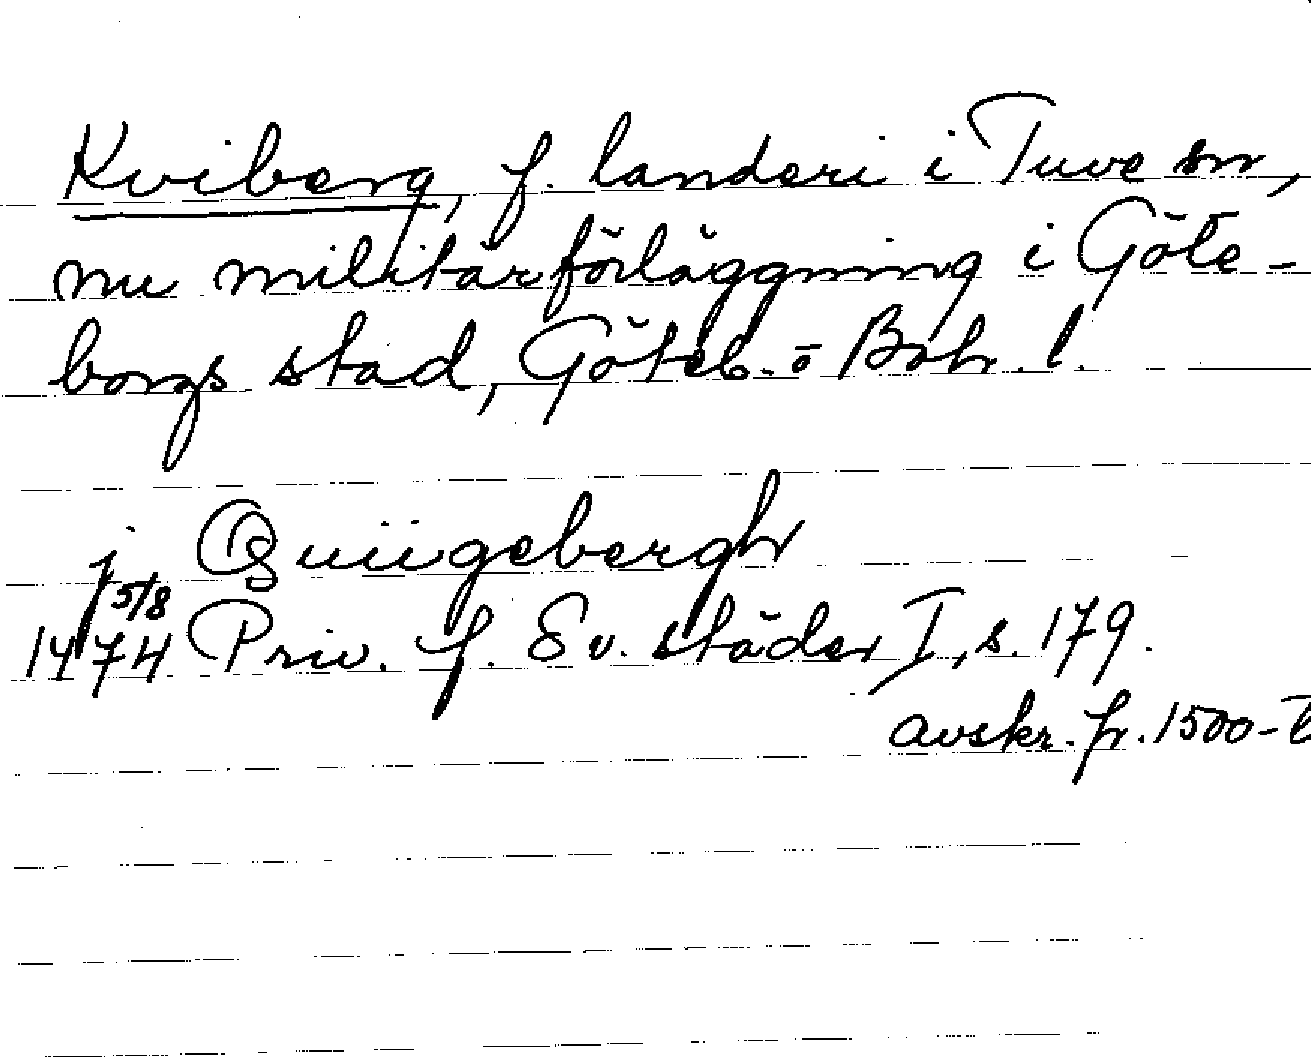 Kviberg, f. landeri i Tuve sn,
nu militärförläggning i Göte-
borgs stad, Göteb. o Boh. l.
j Quiigebergh
5/8
1474 Priv. f. Sv. städer I, s. 179.
avskr. fr. 1500-t